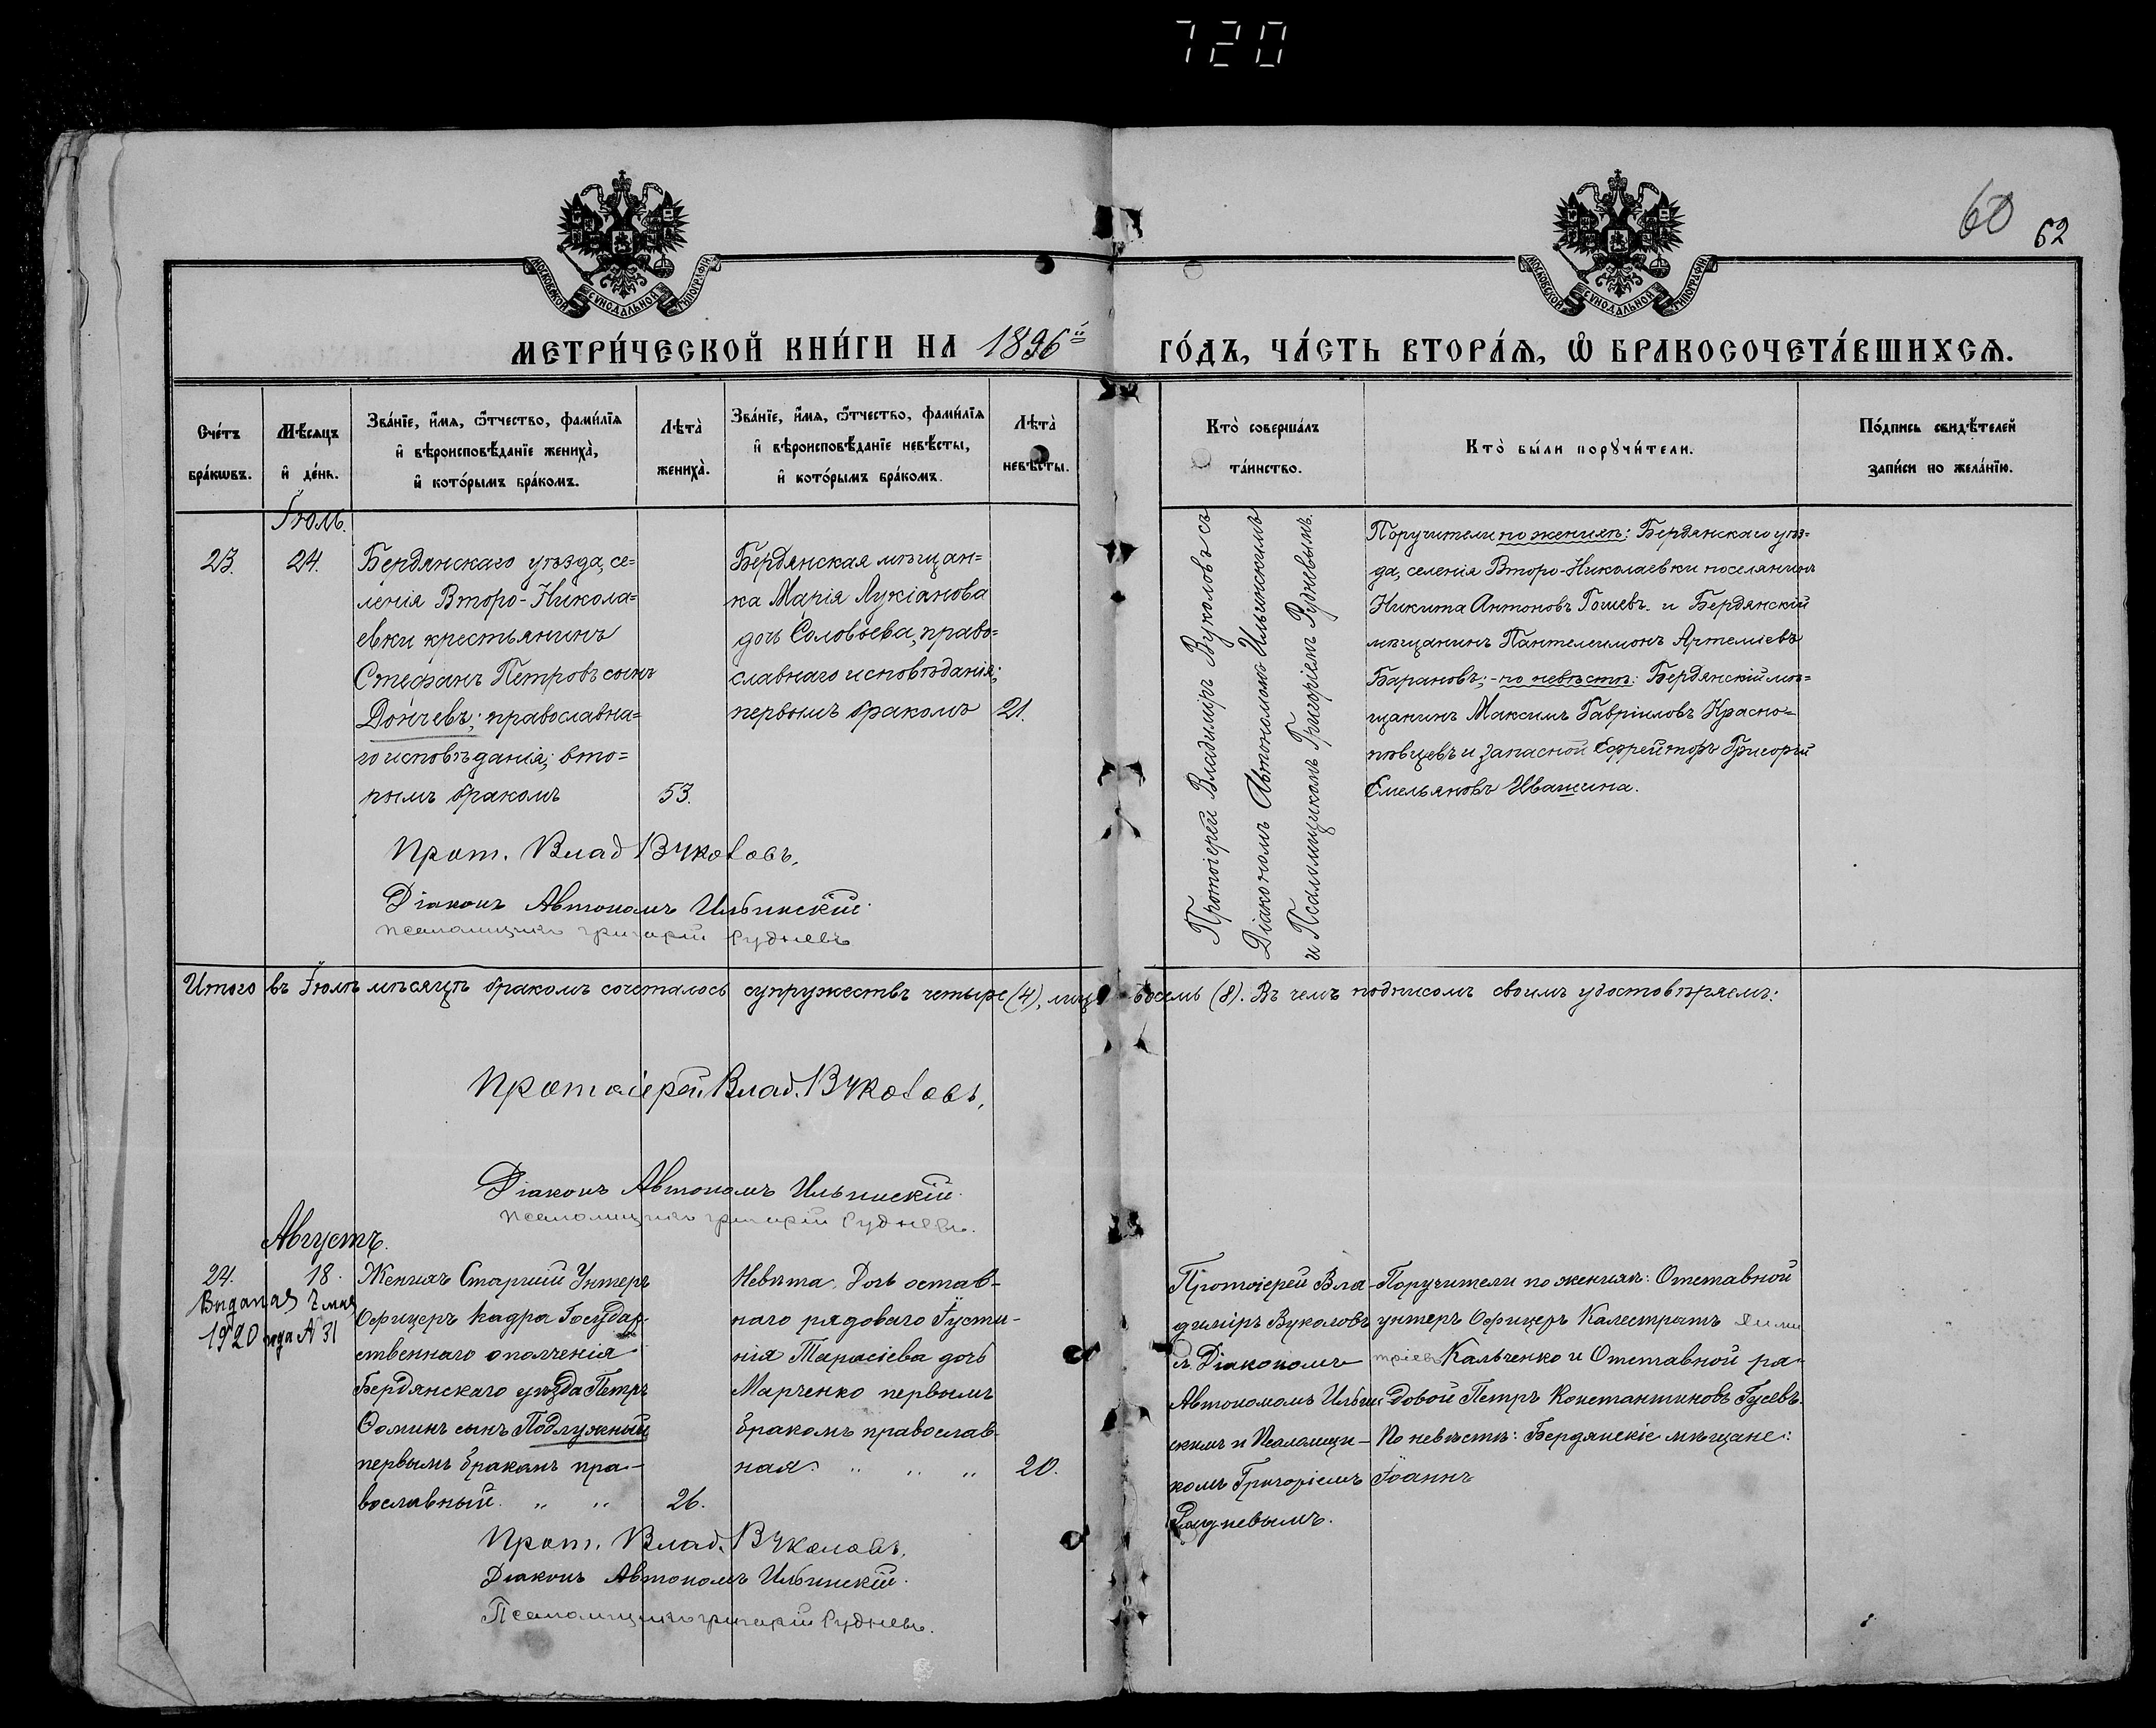 720
60
62
МОСКОВСКОЙ СѴНОДАЛЬНОЙ ТИПОГРАФІИ
МОСКОВСКОЙ СѴНОДАЛЬНОЙ ТИПОГРАФІИ
МЕТРИ́ЧЕСКОЙ КНИ́ГИ НА 1896й ГО́ДЪ, ЧА́СТЬ ВТОРА́Ѧ, Ѽ БРАКОСОЧЕТА́ВШИХСѦ.
Сче́тъ
бра́кѡвъ.
Мѣ́сѧцъ
и҆ де́нь.
Зва́нїе, и҆́мѧ, ѻ҆́тчество, фами́лїѧ
и҆ вѣроисповѣ́данїе жениха̀,
и҆ кото́рымъ бра́комъ.
Лѣта̀
жениха̀.
Зва́нїе, и҆́мѧ, ѻ҆́тчество, фами́лїѧ
и҆ вѣроисповѣ́данїе невѣ́сты,
и҆ кото́рымъ бра́комъ.
Лѣта̀
невѣ́сты.
Кто̀ соверша́лъ
та́инство.
Кто̀ бы́ли порꙋчи́тели.
По́дпись свидѣ́телей
за́писи по жела́нїю.
Іюль.
23.
24.
Бердянскаго уѣзда, се=
ленія Второ-Никола=
евки крестьянинъ
Стефанъ Петровъ сынъ
Дончевъ; православна=
го исповѣданія; вто=
рымъ бракомъ
53.
Бердянская мѣщан=
ка Марія Лукіанова
дочь Соловьева, право=
славнаго исповѣданія;
первымъ бракомъ
21.
Протоіерей Владиміръ Вуколовъ съ
Діакономъ Автономомъ Ильинскимъ
и Псаломщикомъ Григоріемъ Рудневымъ.
Поручители по женихѣ: Бердянскаго уѣз=
да, селенія Второ-Николаевки поселянинъ
Никита Антоновъ Гошевъ и Бердянскій
мѣщанинъ Пантелеимонъ Артеміевъ
Барановъ; - по невѣстѣ: Бердянскій мѣ=
щанинъ Максимъ Гавріиловъ Красно=
пѣвцевъ и запасной Ефрейторъ Григорій
Емельяновъ Ивашина.
Прот. Влад Вуколовъ.
Діаконъ Автономъ Ильинскій.
псаломщикъ григорій Рудневъ
Итого въ Іюлѣ мѣсяцѣ бракомъ сочеталось супружествъ четыре (4), лицъ восемь (8). Въ чемъ подписомъ своимъ удостовѣряемъ:
Протоіерей Влад. Вуколовъ.
Діаконъ Автономъ Ильинскій.
псаломщикъ григорій Рудневъ.
Августъ.
24.
18.
Выдана 7 мая
1920 года № 31
Женихъ Старшій Унтеръ
Офицеръ кадра Государ-
ственнаго ополченія
Бердянскаго уѣзда Петръ
Ѳоминъ сынъ Подлужный
первымъ бракомъ пра-
вославный. „ „
26.
Невѣста. Дочь остав-
наго рядоваго Іусти-
нія Тарасіева дочь
Марченко первымъ
бракомъ православ-
ная. „ „ „
20.
Протоіерей Вла-
диміръ Вуколовъ
съ Діакономъ
Автономомъ Ильин
скимъ и Псаломщи-
комъ Григоріемъ
Рудневымъ.
Поручители по женихѣ: Отставной
унтеръ Офицеръ Калестратъ Дими
тріевъ Кальченко и Отставной ря-
довой Петръ Константиновъ Гусевъ.
По невѣстѣ: Бердянскіе мѣщане:
Іоаннъ
Прот. Влад. Вуколовъ.
Діаконъ Автономъ Ильинскій.
Псаломщикъ григорій Рудневъ.